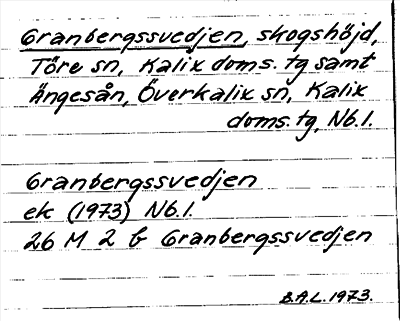 Granbergssvedjen, skogshöjd,
Töre sn, Kalix doms. tg samt
Ängesån, Överkalix sn, Kalix
doms. tg, Nb.l.
Granbergssvedjen
ek (1973) Nb.l.
26 M 2 b Granbergssvedjen
B.A.L. 1973.